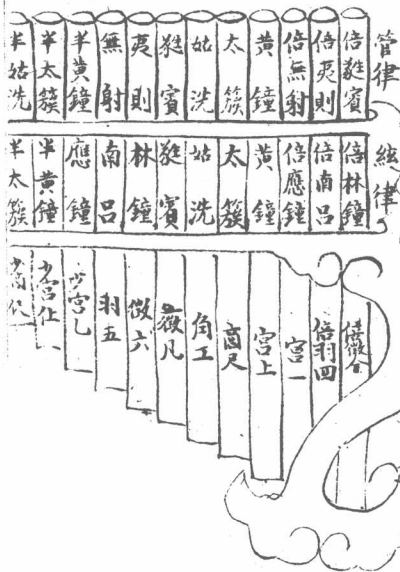 管律
倍蕤賓
倍夷則
倍無射
黃鐘
太簇
姑洗
蕤賓
夷則
無射
半黃鐘
半太簇
半姑洗
絃律
倍林鐘
倍南呂
倍應鐘
黃鐘
太簇
姑洗
蕤賓
林鐘
南呂
應鐘
半黃鐘
半太簇
倍徵合
倍羽四
宮一
宮上
商尺
角工
徵凡
徵六
羽五
宮乙
少宮仩
少商伬